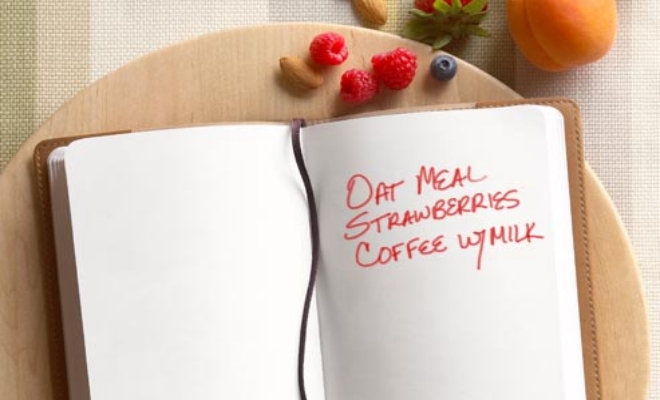 OAT MEAL
STRAWBERRIES
COFFEE W/MILK